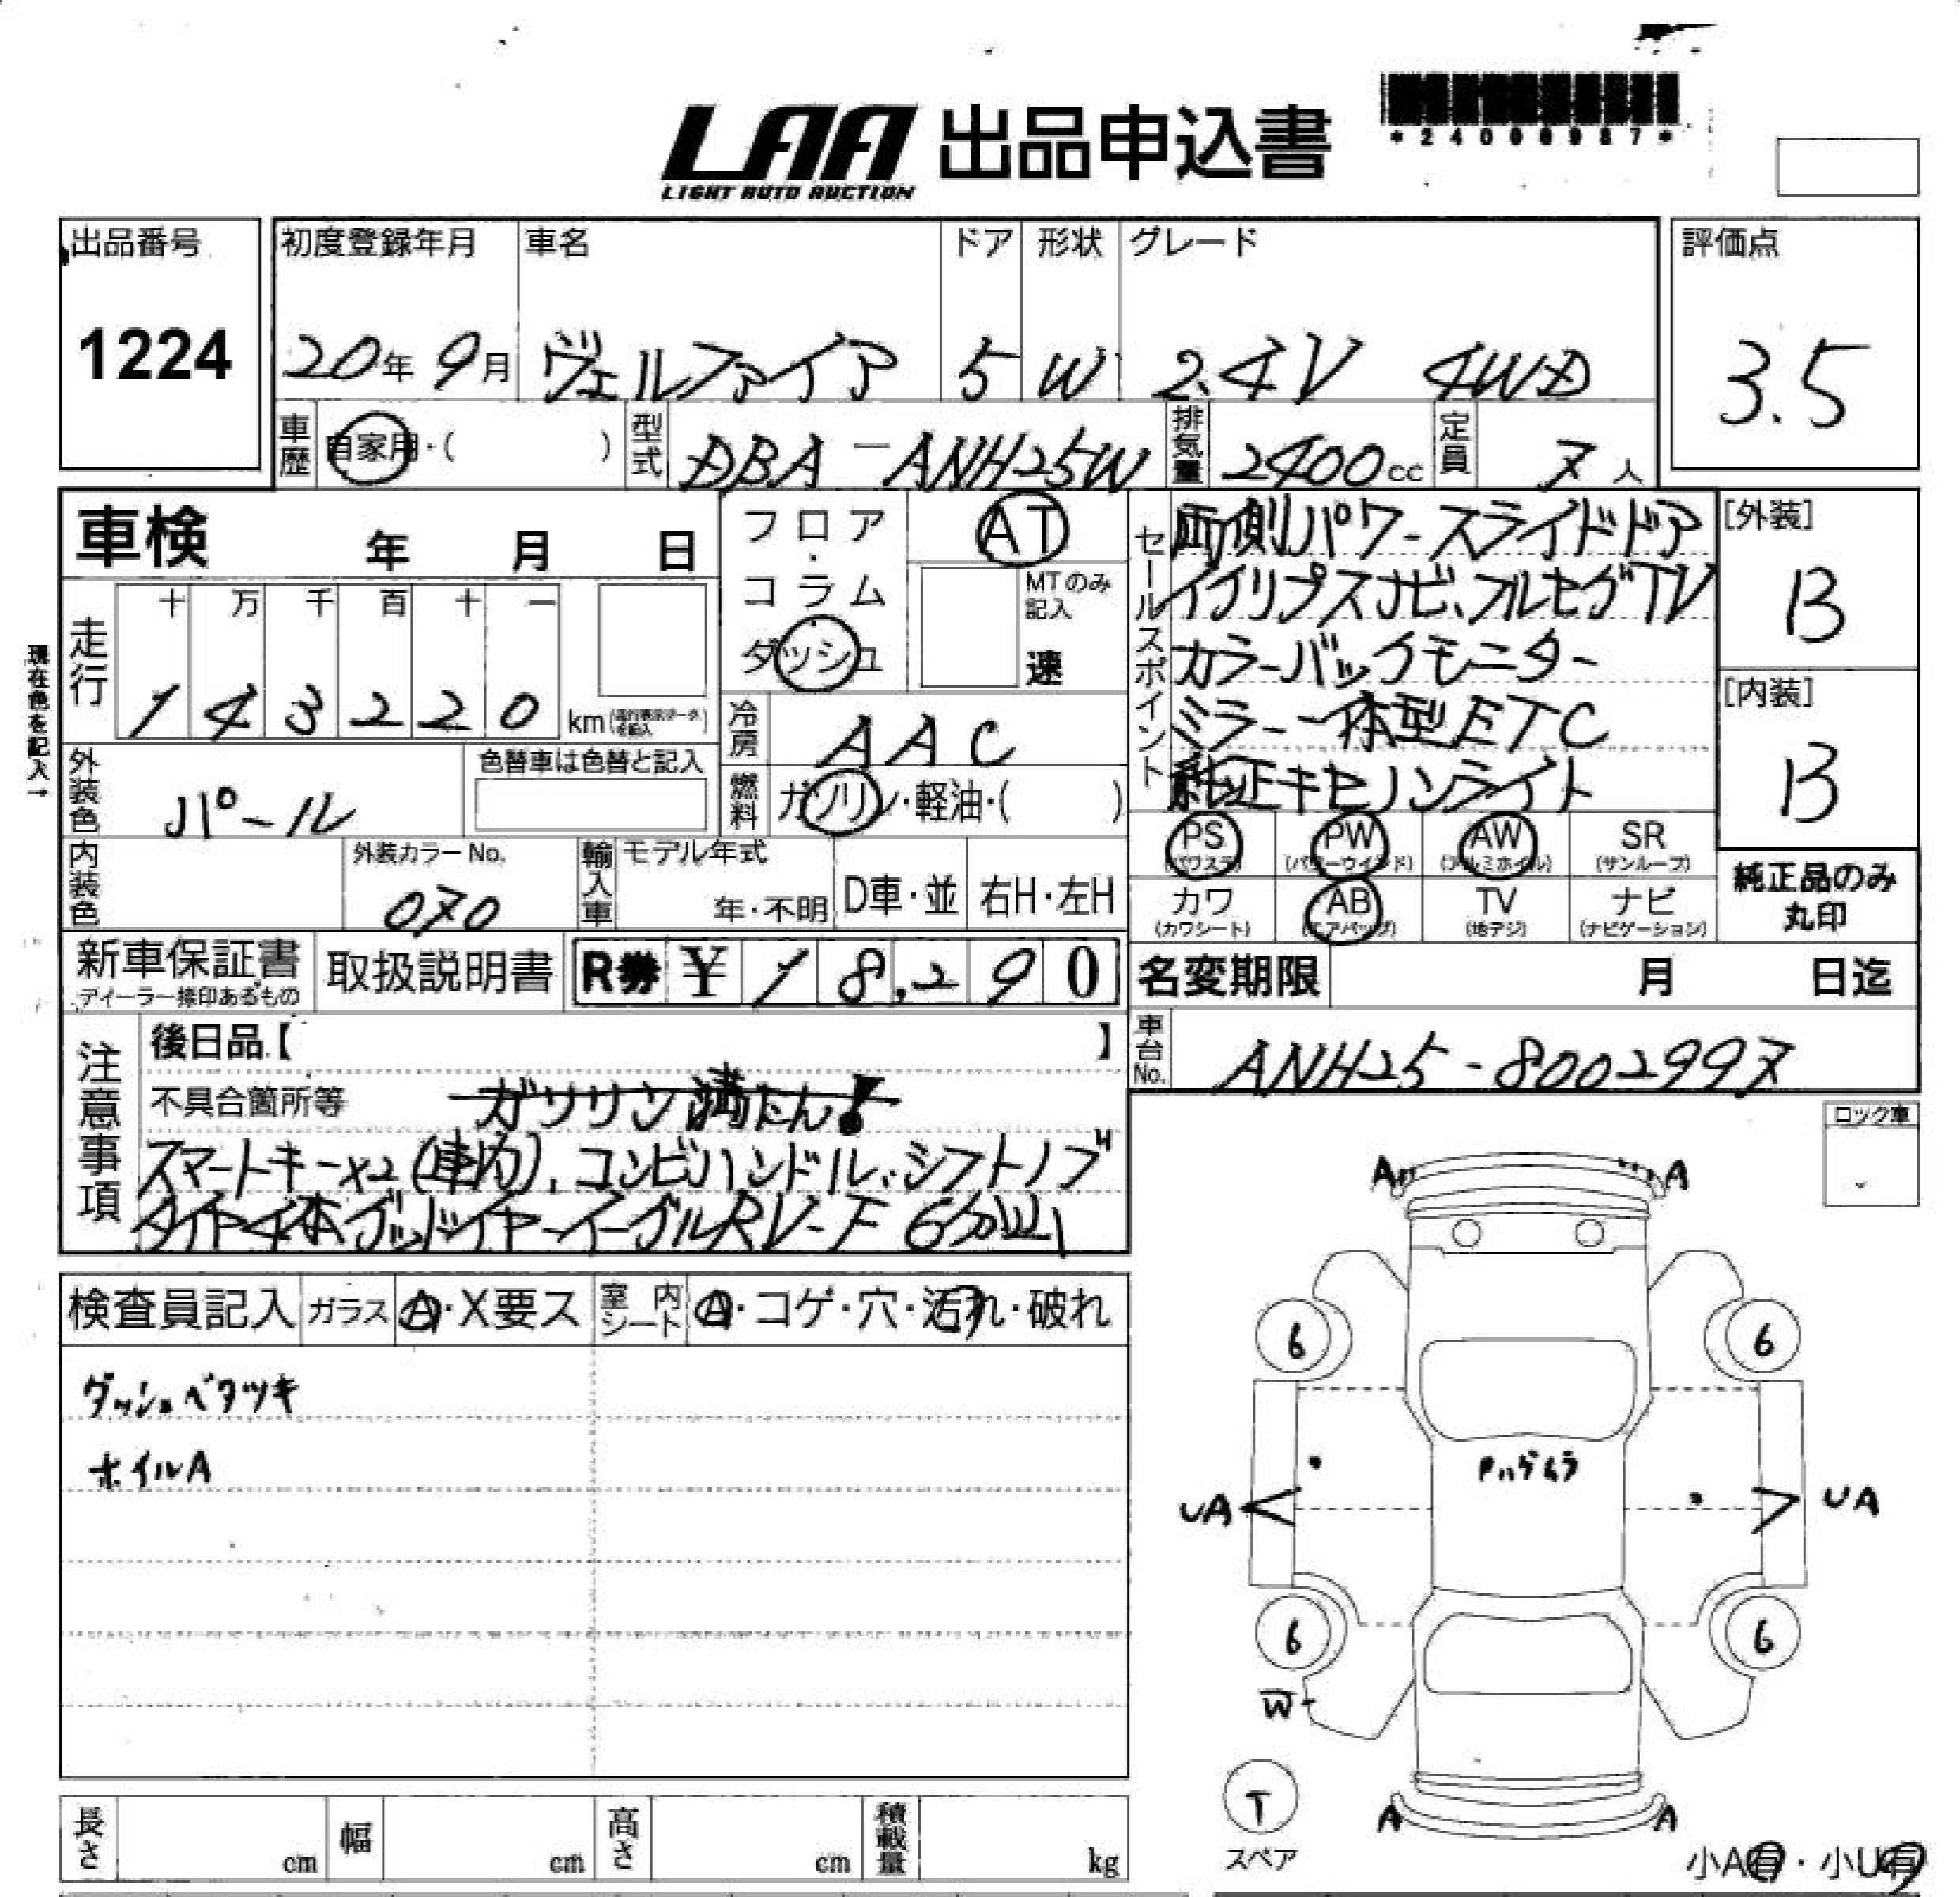 LAA 出品申込書
LIGHT AUTO AUCTION
出品番号
1224
初度登録年月
20年 9月
車名
ヴェルファイア
ドア
5
形状
W
グレード
2.4V 4WD
評価点
3.5
車歴
自家用・( )
型式
DBA-ANH25W
排気量
2400cc
定員
7人
車検 年 月 日
フロア・コラム
ダッシュ
AT
MTのみ記入
速
現在色を記入→
走行
十 万 千 百 十 一
1 4 3 2 2 0 km
冷房
AAC
燃料
ガソリン・軽油・( )
外装色
パール
色替車は色替と記入
内装色
外装カラーNo.
070
輸入車
モデル年式
年・不明
D車・並
右H・左H
セールスポイント
両側パワースライドドア
イクリプスナビ、フルセグTV
カラーバックモニター
ミラー一体型ETC
純正キセノンライト
[外装]
B
[内装]
B
PS (パワステ)
PW (パワーウインド)
AW (アルミホイル)
SR (サンルーフ)
カワ (カワシート)
AB (エアバッグ)
TV (地デジ)
ナビ (ナビゲーション)
純正品のみ
丸印
新車保証書
ディーラー捺印あるもの
取扱説明書
R券 ¥ 18,290
名変期限 月 日迄
車台No.
ANH25-8002997
注意事項
後日品【 】
不具合箇所等 ガソリン満たん!
スマートキー×2(車内)、コンビハンドル・シフトノブ
タイヤ4本グッドイヤーイーグルRV-F
ロック車
検査員記入
ガラス
A・X要ス
室内シート
A・コゲ・穴・汚れ・破れ
ダッシュベタツキ
ホイルA
A A
6 6
UA UA
6 6
W
T
スペア
A A
小A有・小U有
長さ cm
幅 cm
高さ cm
積載量 kg